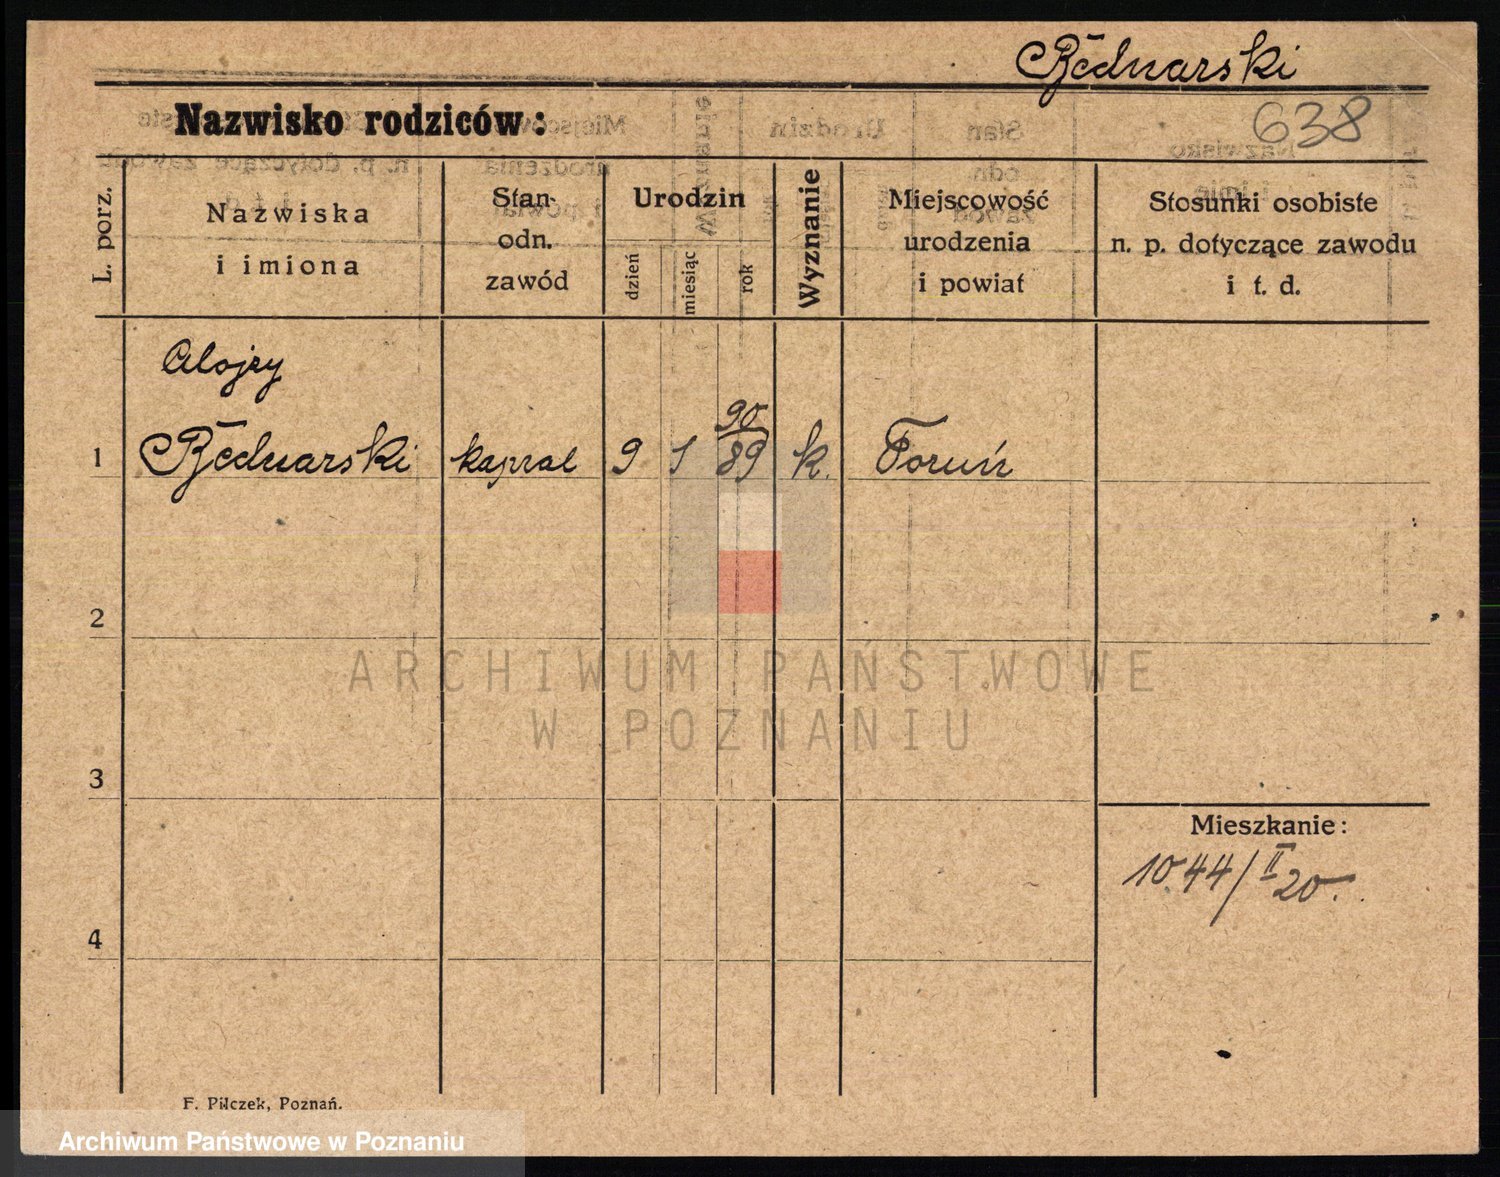 Bednarski
Nazwisko rodziców:
638
L. porz.
Nazwiska
i imiona
Stan-
odn.
zawód
Urodzin
dzień
miesiąc
rok
Wyznanie
Miejscowość
urodzenia
i powiat
Stosunki osobiste
n. p. dotyczące zawodu
i t. d.
Alojzy
90
1 Bednarski kapral 9 1 89 k. Toruń
2
ARCHIWUM PAŃSTWOWE
W POZNANIU
3
Mieszkanie:
1044/II 20.
4
F. Pilczek, Poznań.
Archiwum Państwowe w Poznaniu